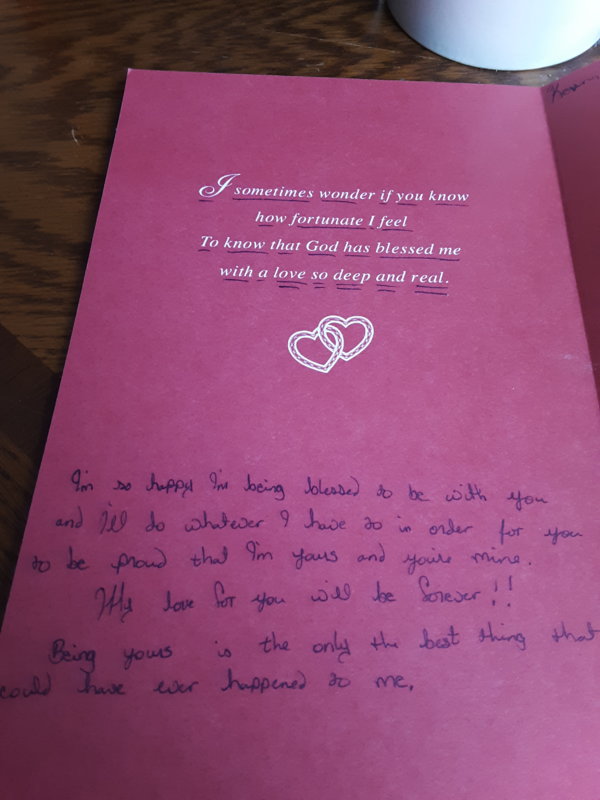 I sometimes wonder if you know
how fortunate I feel
To know that God has blessed me
with a love so deep and real.
I'm so happy I'm being blessed to be with you
and I'll do whatever I have to in order for you
to be proud that I'm yours and you're mine.
My love for you will be forever!!
Being yours is the only the best thing that
could have ever happened to me.